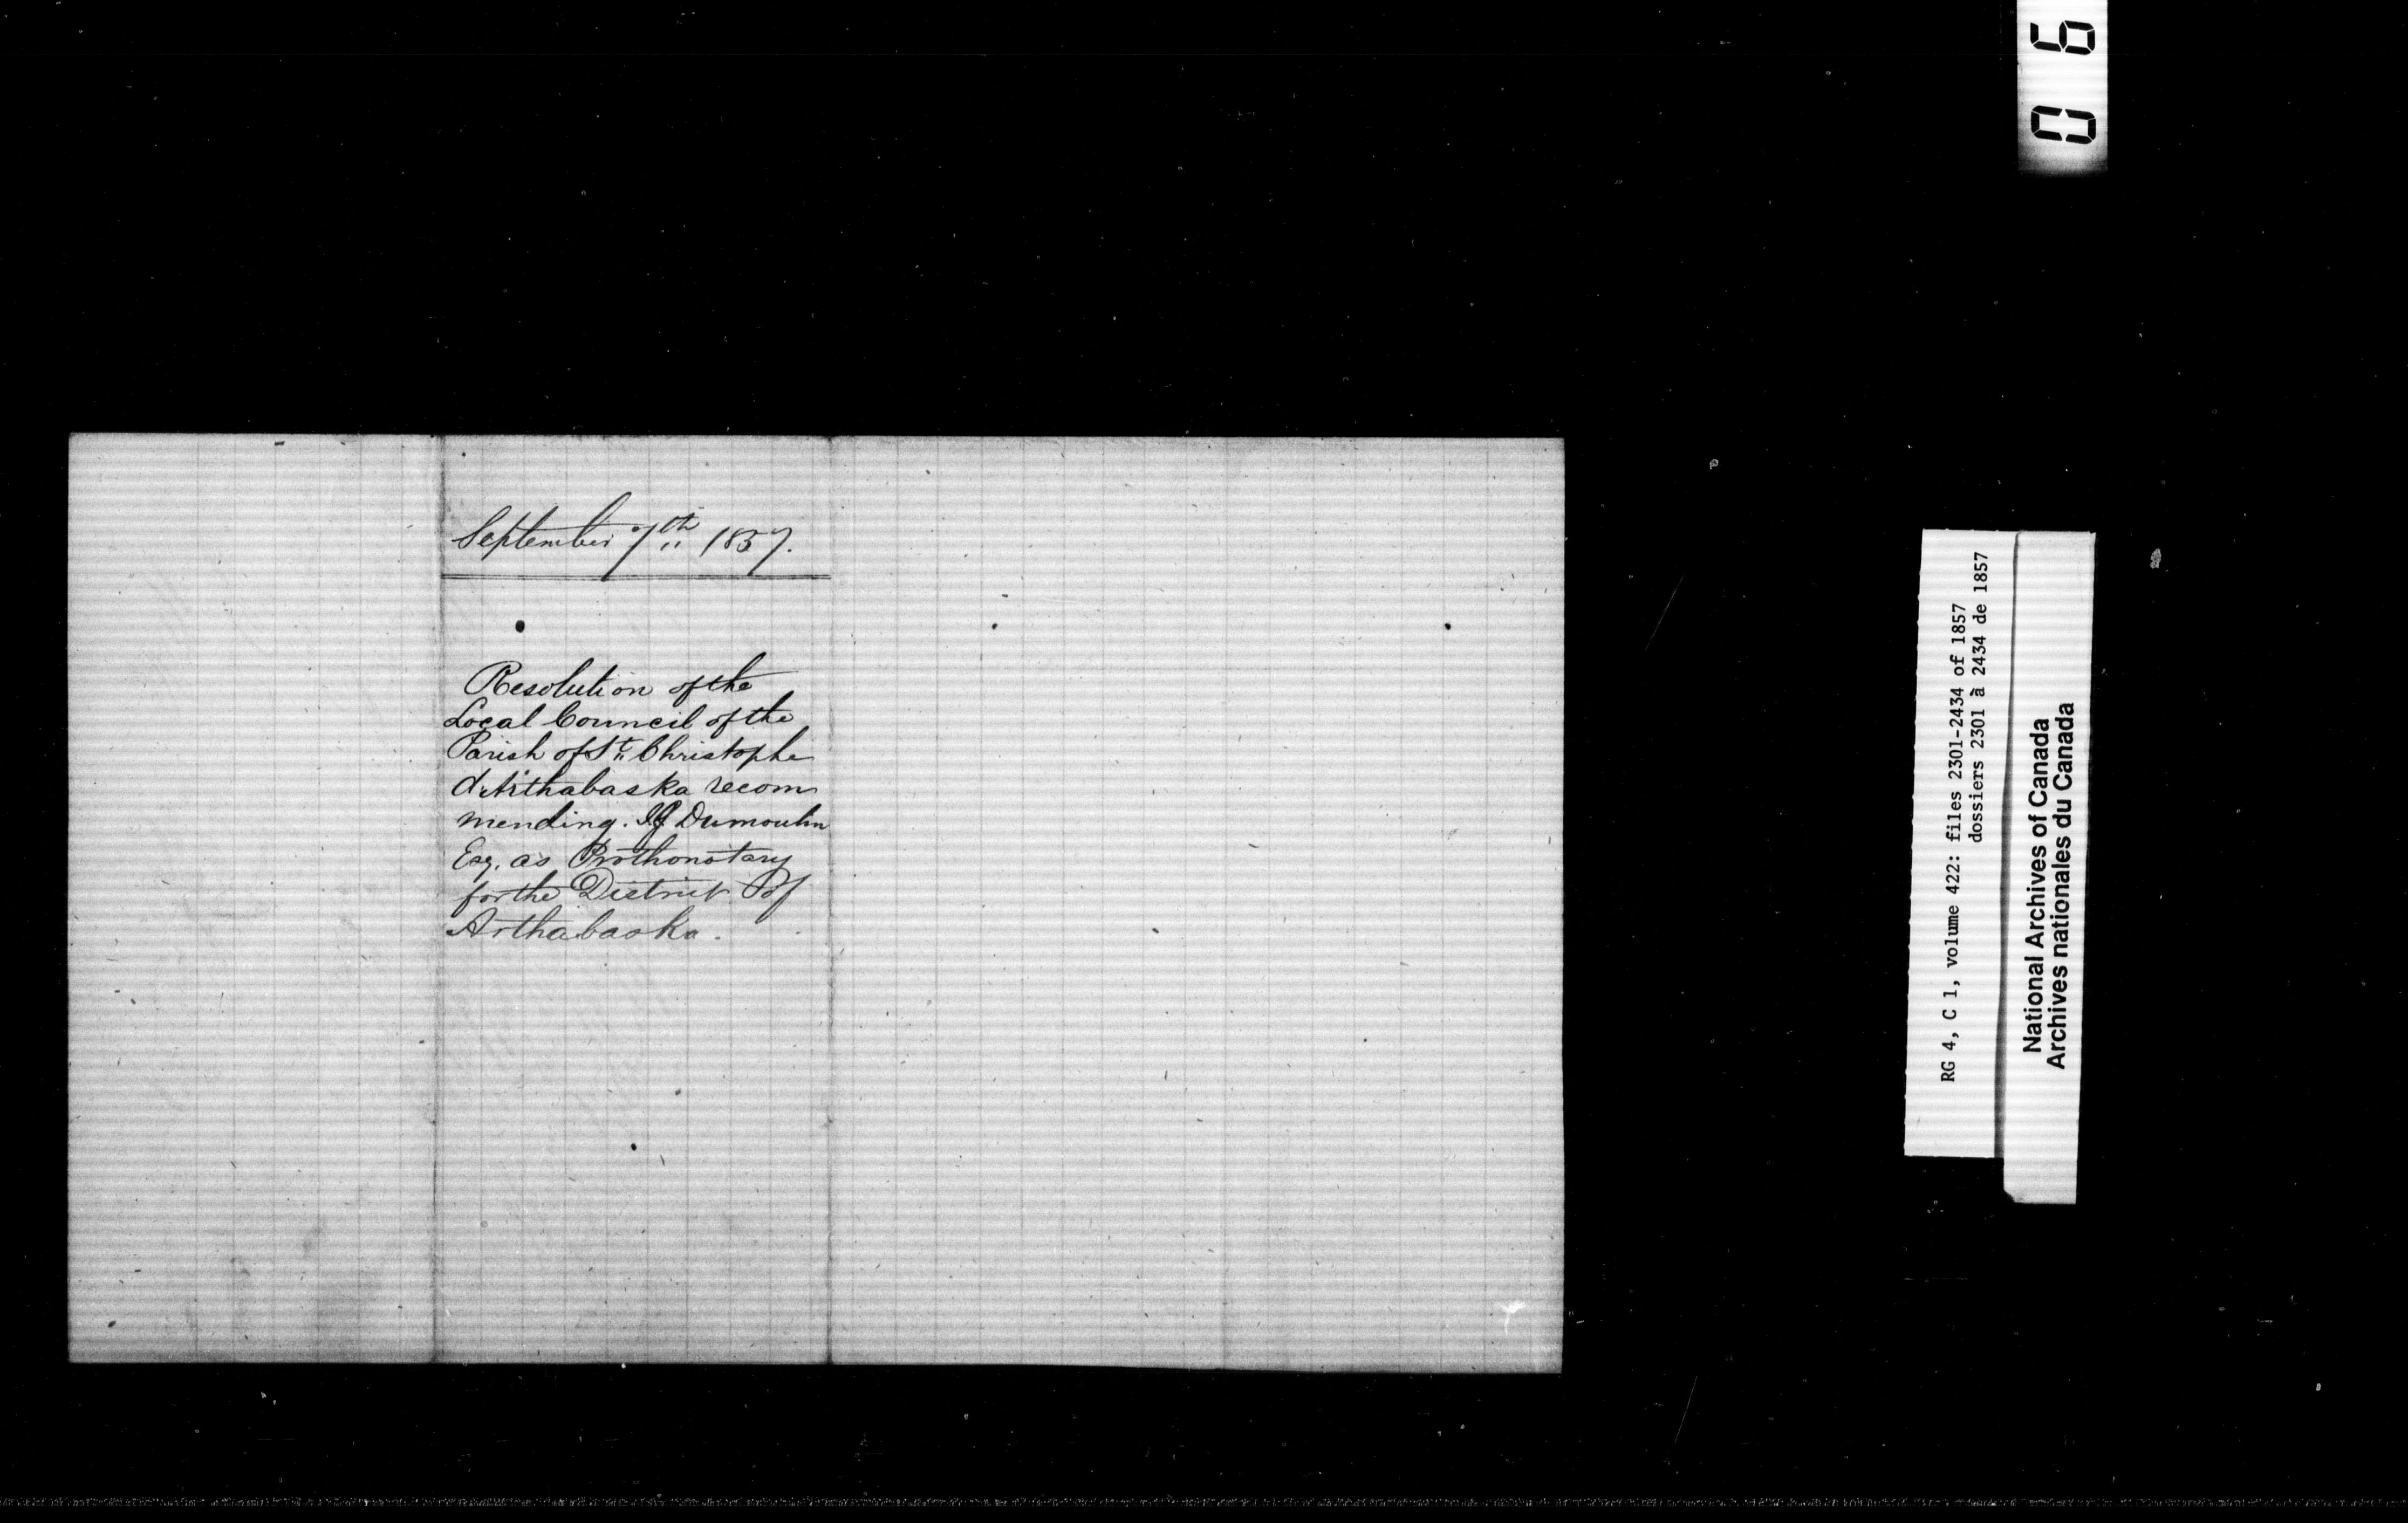 September 7th 1857.
Resolution of the
Local Council of the
Parish of St. Christophe
d'Arthabaska recom
mending. Dumoulin
Esq. as Prothonotary
for the District of
Arthabaska.
RG 4, C 1, volume 422: files 2301-2434 of 1857
dossiers 2301 à 2434 de 1857
National Archives of Canada
Archives nationales du Canada
06